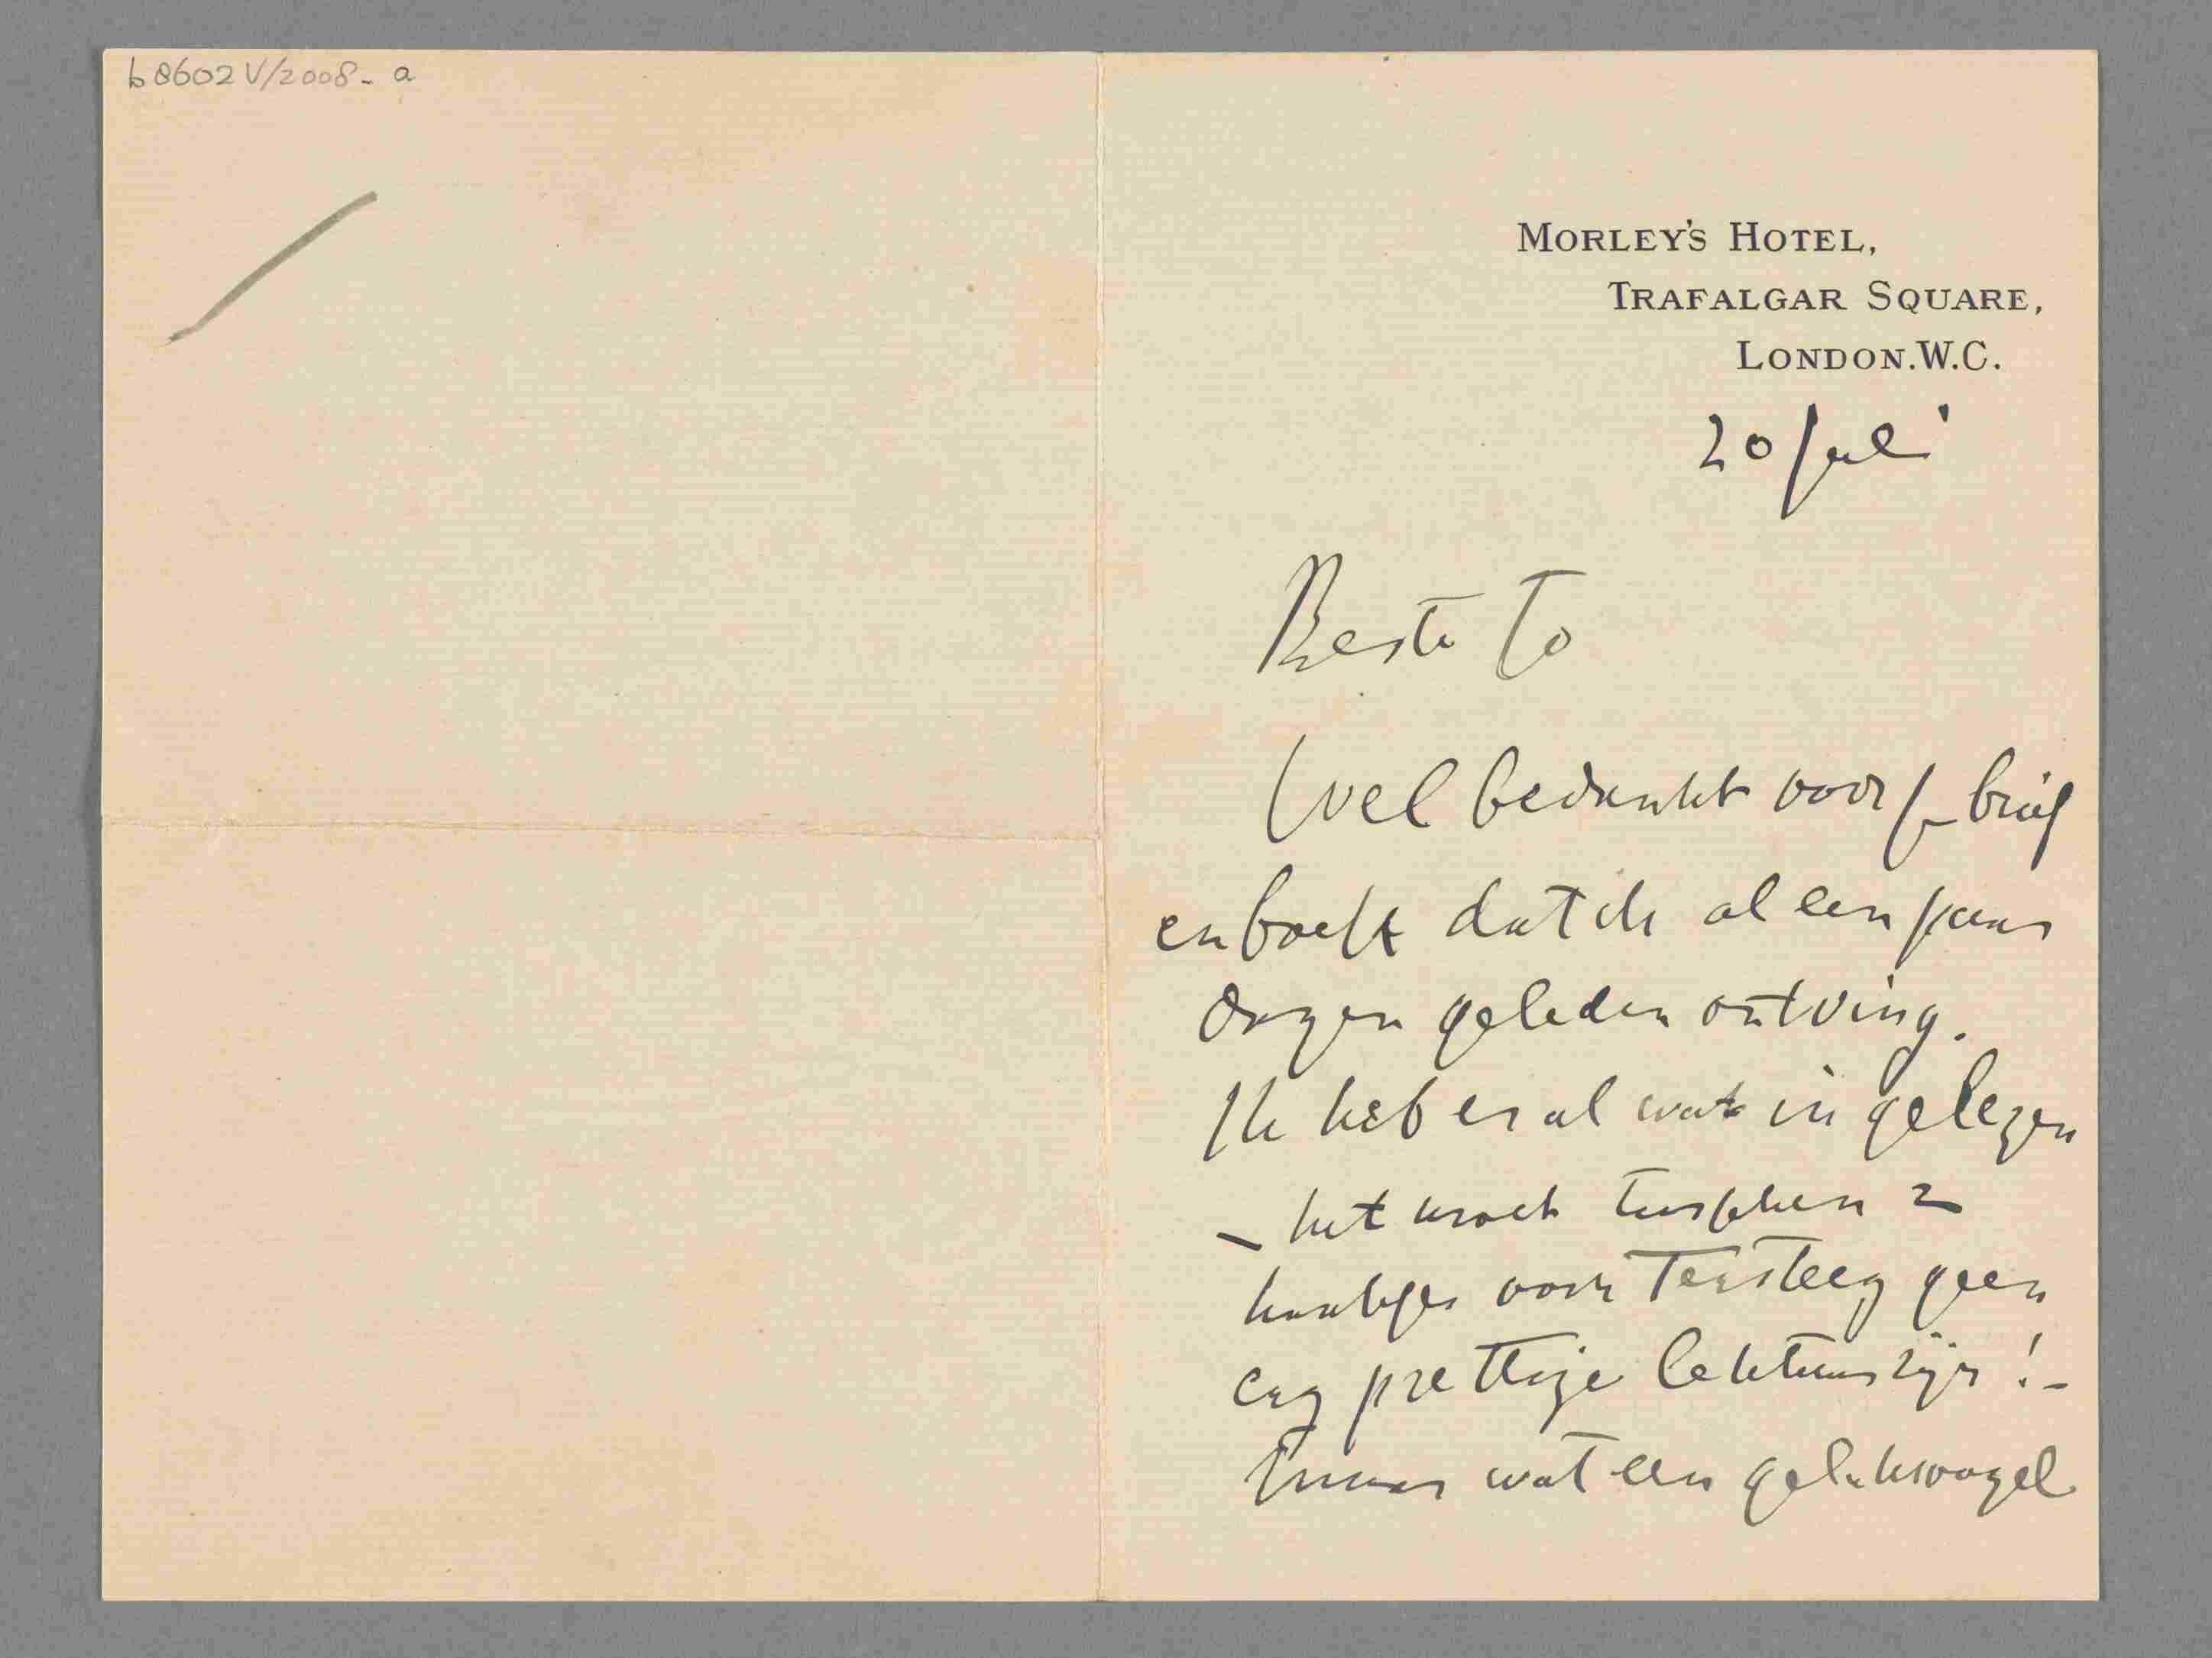 b8602 V/2008-a
MORLEY'S HOTEL,
TRAFALGAR SQUARE,
LONDON.W.C.
20 Juli
Beste To
Wel bedankt voor je brief
en boek dat ik al een paar
dagen geleden ontving.
Ik heb er al wat in gelezen
– het moet tusschen 2
haakjes voor Tersteeg geen
erg prettige lektuur zijn! –
Maar wat een geluksvogel